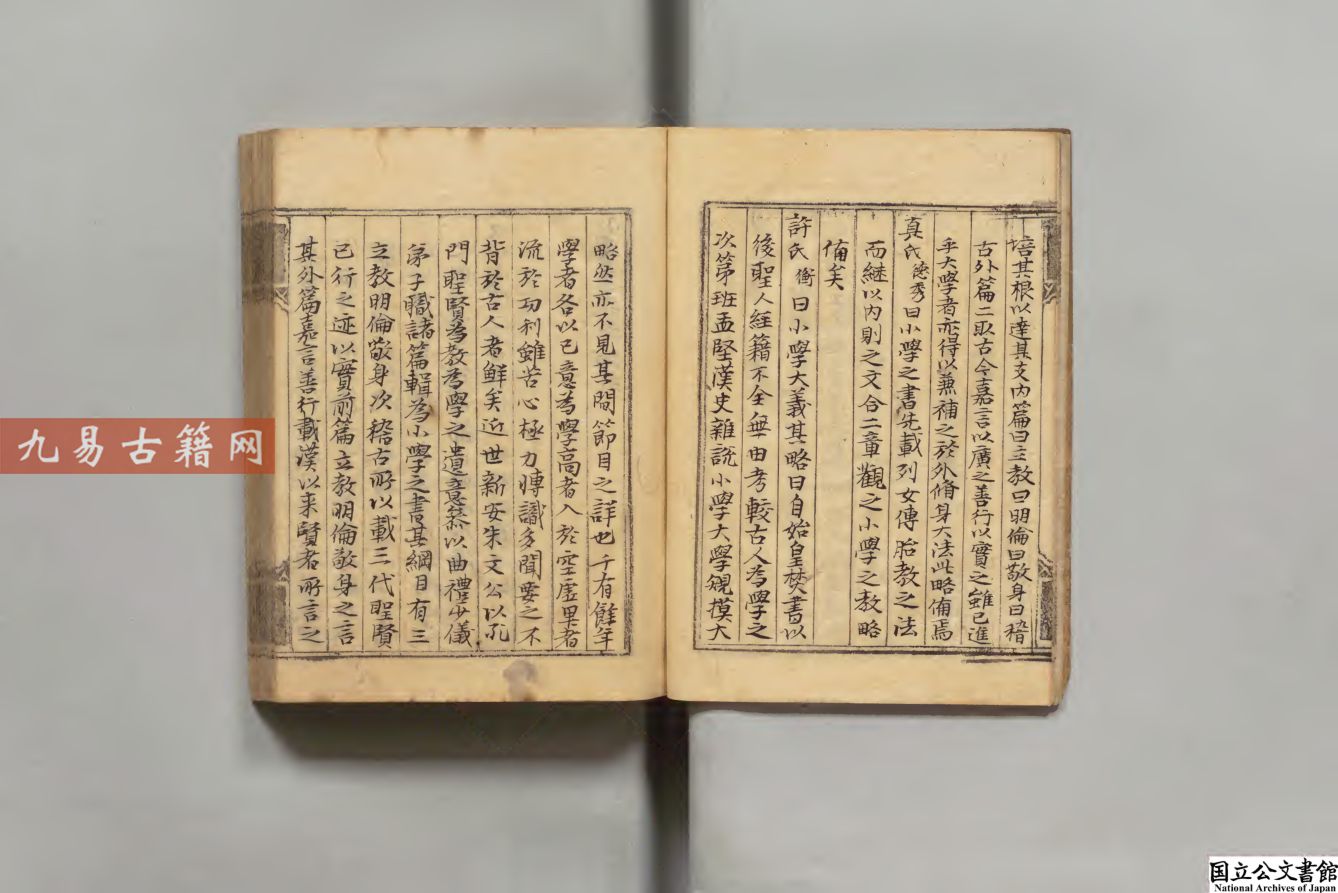 培其根以達其支内篇曰立教曰明倫曰敬身曰稽
古外篇二取古今嘉言以廣之善行以實之雖已進
乎大學者亦得以兼補之於外脩身大法此略備焉
真氏德秀曰小學之書先載列女傳胎教之法
而継以内則之文合二章觀之小學之教略
備矣
許氏衡曰小學大義其略曰自始皇焚書以
後聖人經籍不全無由考較古人為學之
次第班孟堅漢史雖說小學大學規模大
略然亦不見其間節目之詳也千有餘年
學者各以己意為學高者入於空虛卑者
流於功利雖苦心極力博識多聞要之不
背於古人者鮮矣近世新安朱文公以孔
門聖賢為教為學之遺意叅以曲禮少儀
弟子職諸篇輯為小學之書其綱目有三
立教明倫敬身次稽古所以載三代聖賢
已行之迹以實前篇立教明倫敬身之言
其外篇嘉言善行載漢以来賢者所言之
九易古籍网
国立公文書館
National Archives of Japan